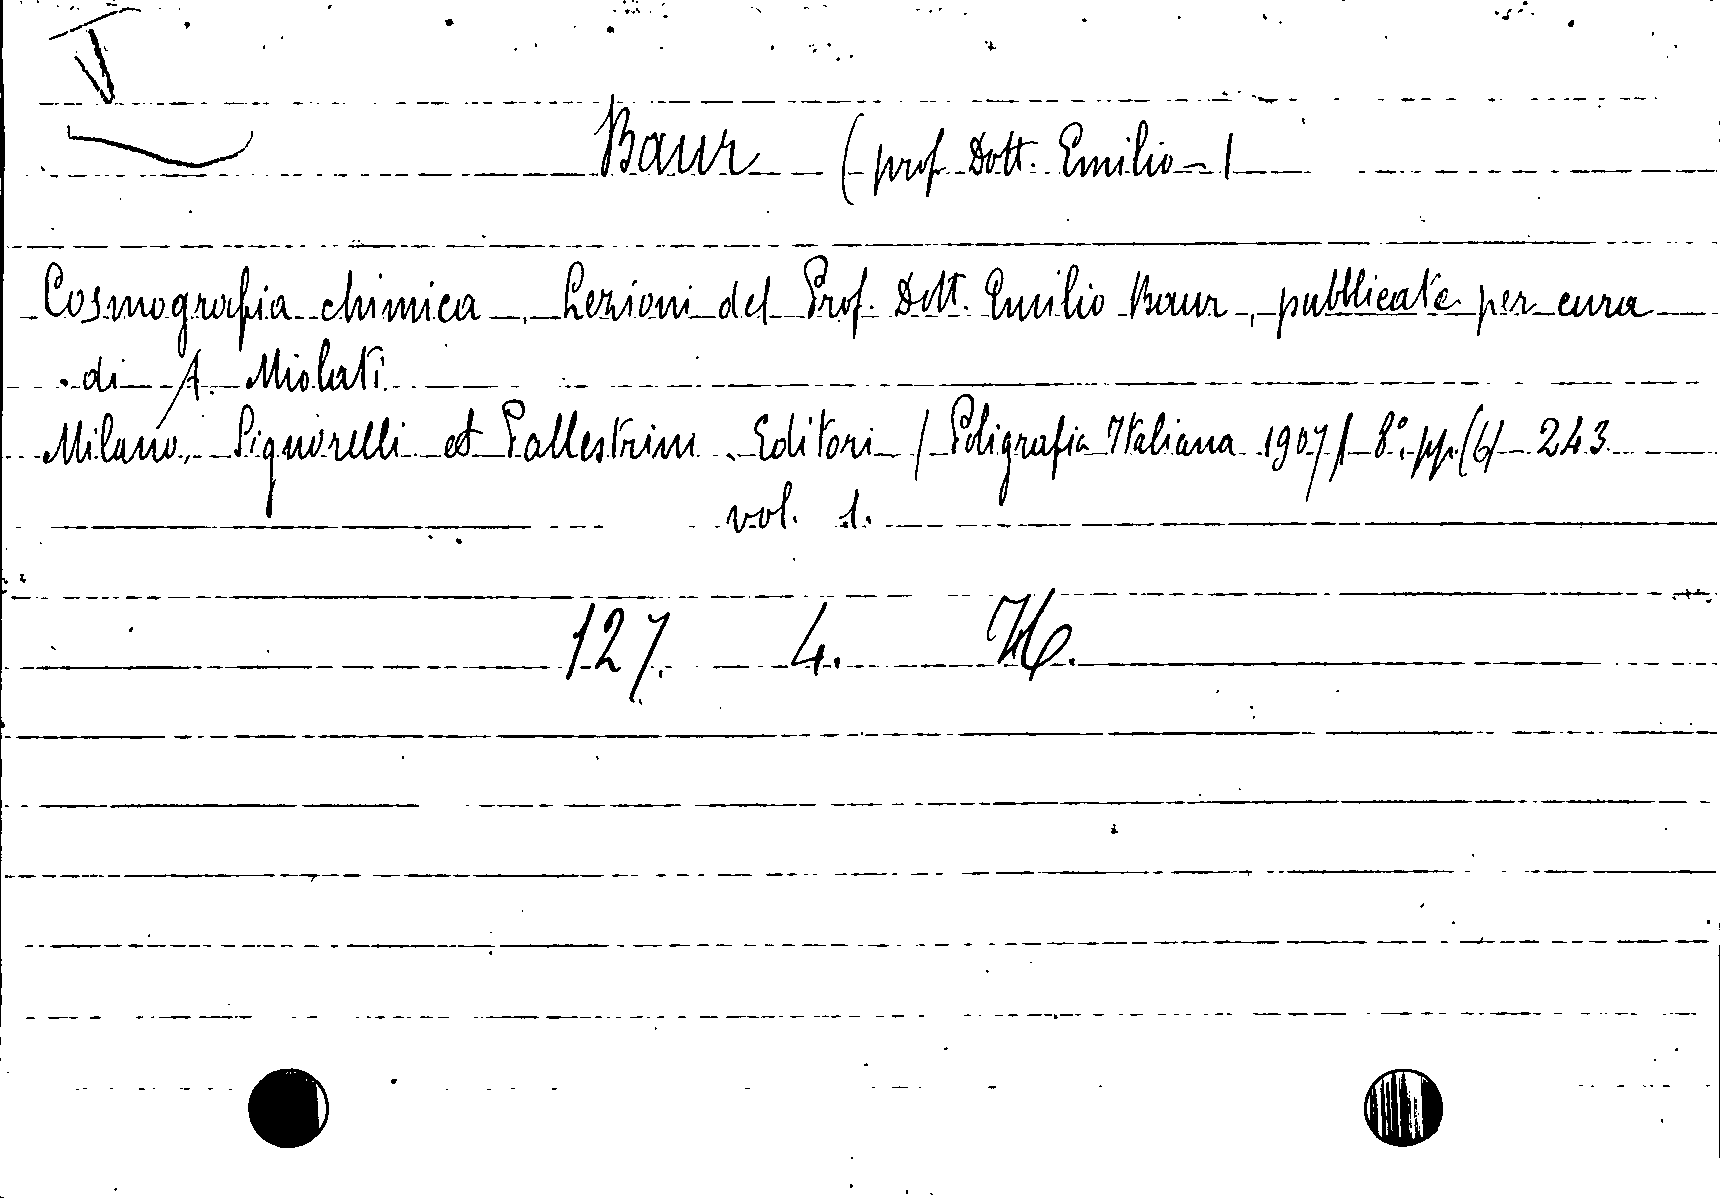 Baur (prof. Dott. Emilio-)
Cosmografia chimica. Lezioni del Prof. Dott. Emilio Baur, pubblicate per cura
di A. Miolati
Milano, Signorelli et Pallestrini Editori (Poligrafia Italiana 1907) 8°. pp. (6) 243
vol. 1.
127. 4. H.